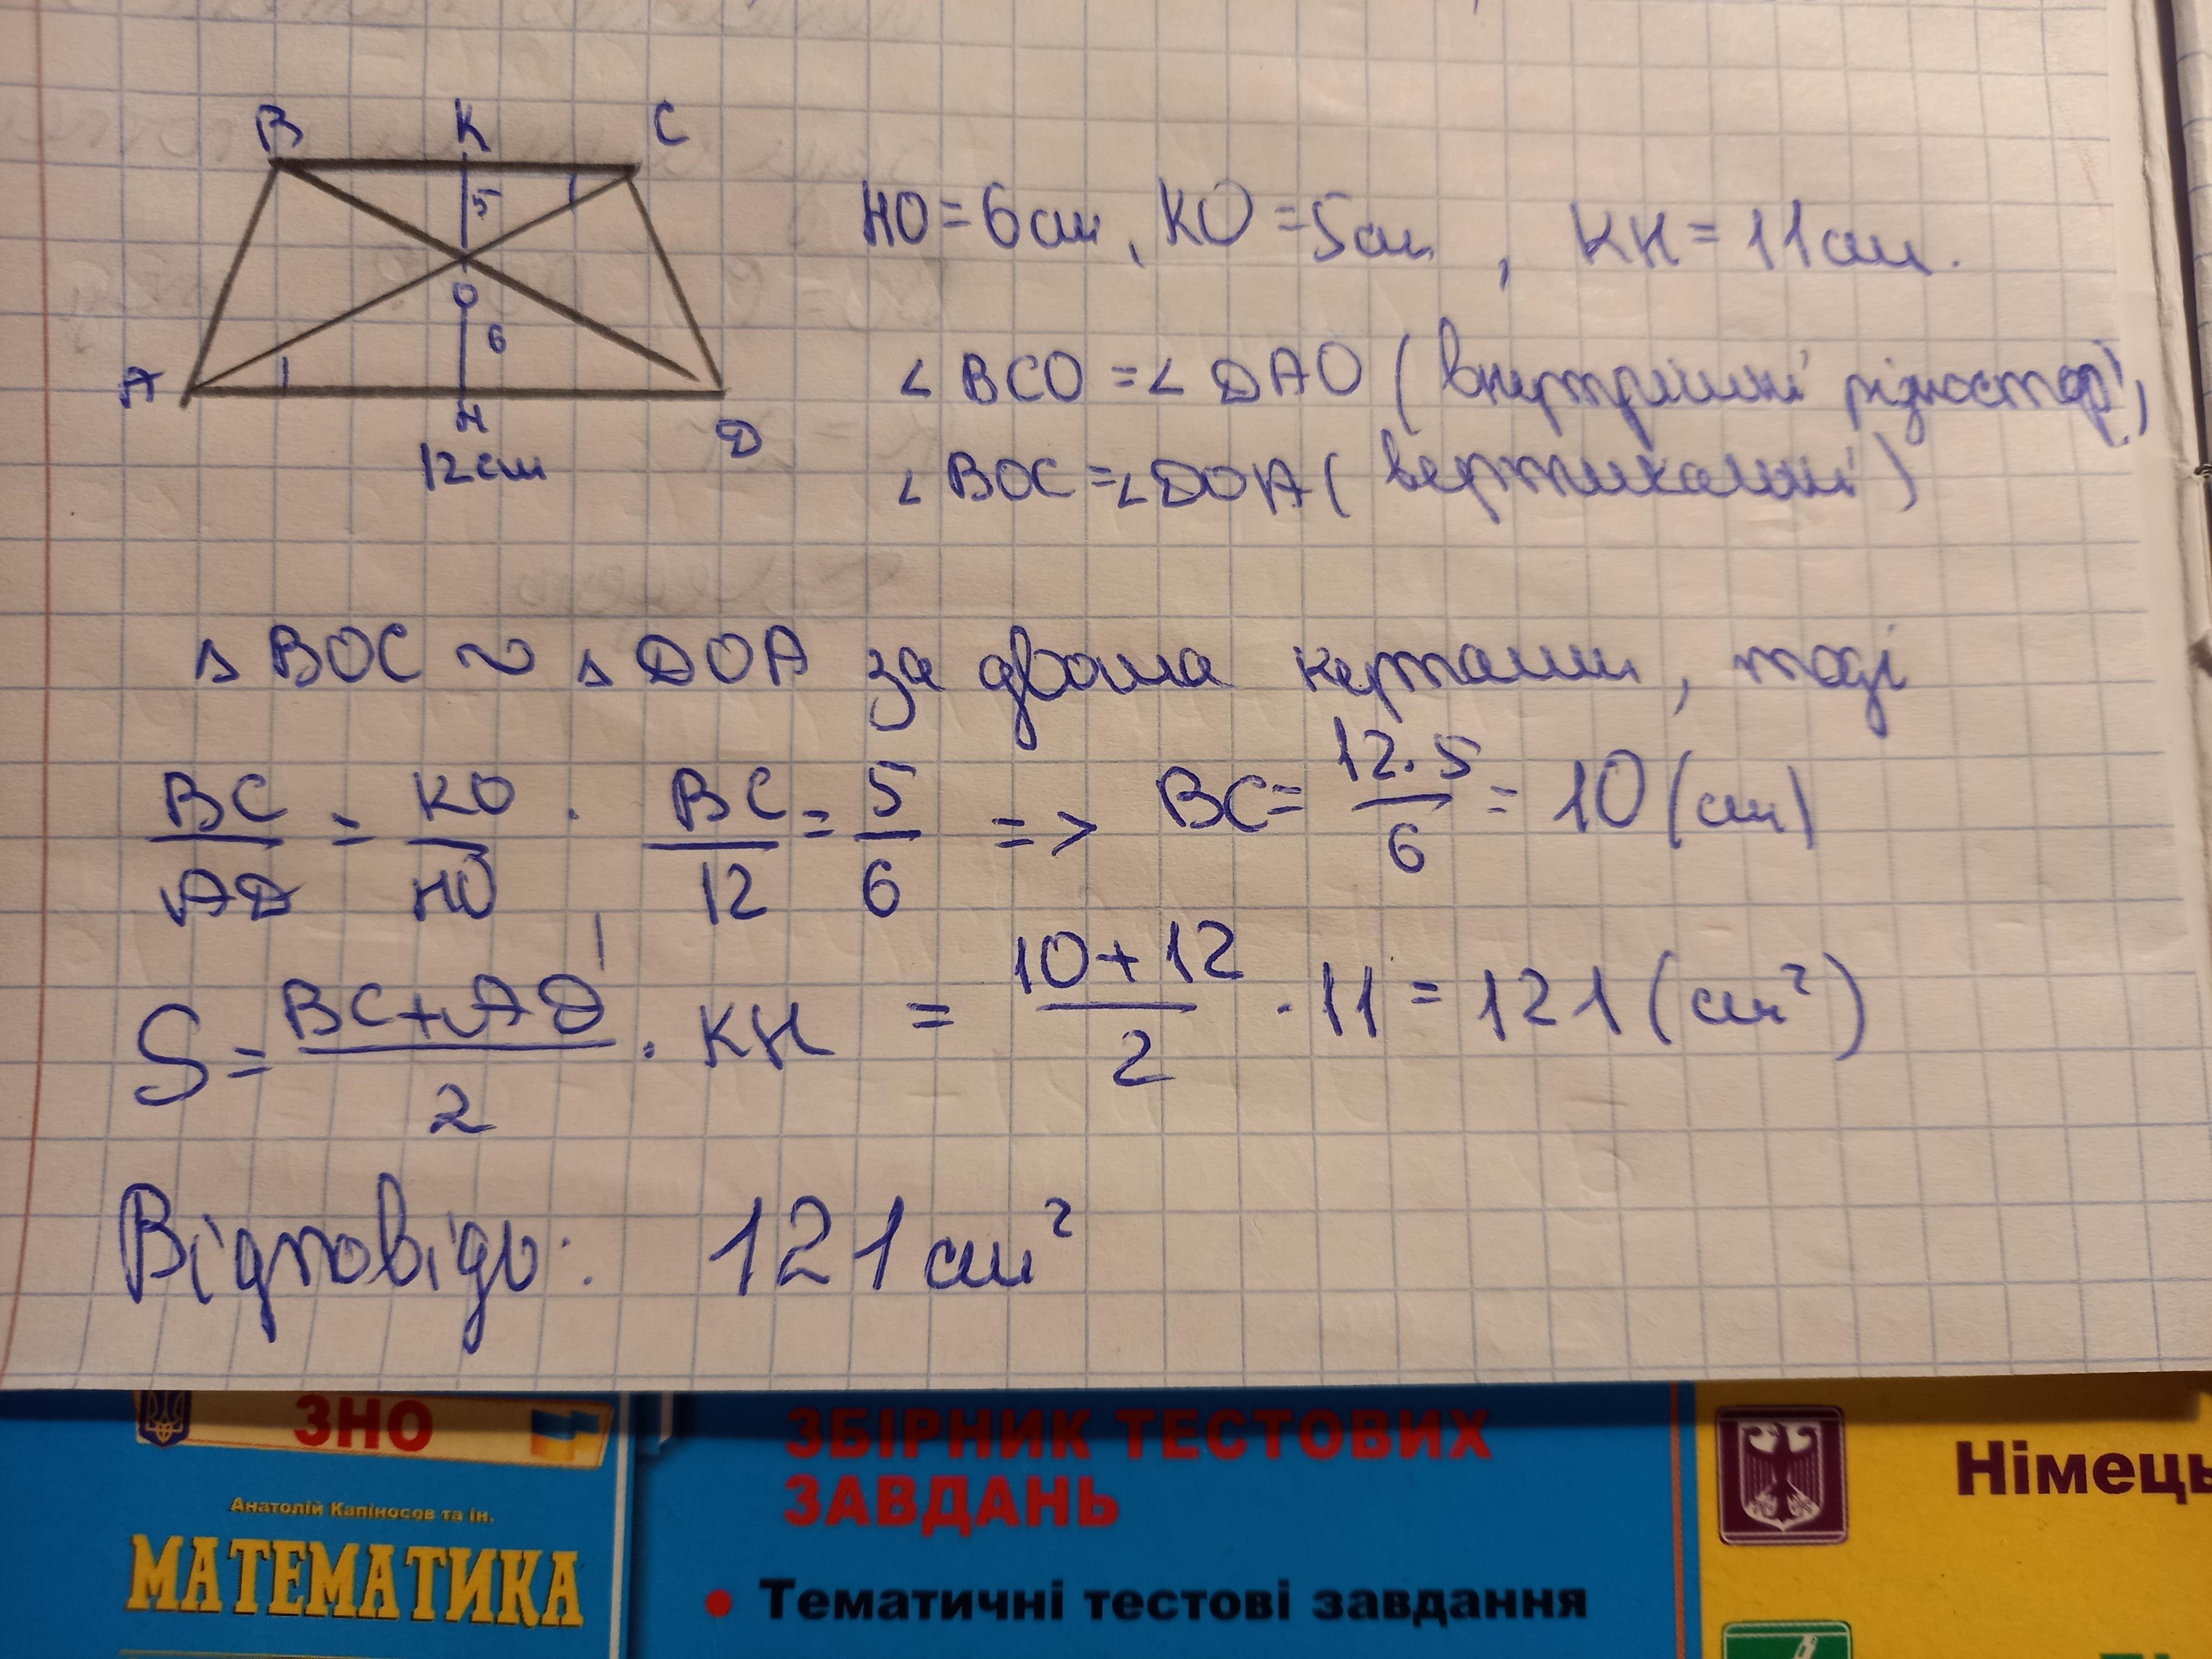 B K C
5
O
6
A H D
12 см
HO = 6 см, KO = 5 см, KH = 11 см.
∠ BCO = ∠ DAO (внутрішні різностор.),
∠ BOC = ∠ DOA (вертикальні)
Δ BOC ~ Δ DOA за двома кутами, тоді
BC/AD = KO/HO, BC/12 = 5/6 => BC = 12·5/6 = 10 (см)
S = (BC + AD)/2 · KH = (10 + 12)/2 · 11 = 121 (см²)
Відповідь: 121 см²
ЗНО
Анатолій Капіносов та ін.
МАТЕМАТИКА
ЗБІРНИК ТЕСТОВИХ
ЗАВДАНЬ
• Тематичні тестові завдання
Німець